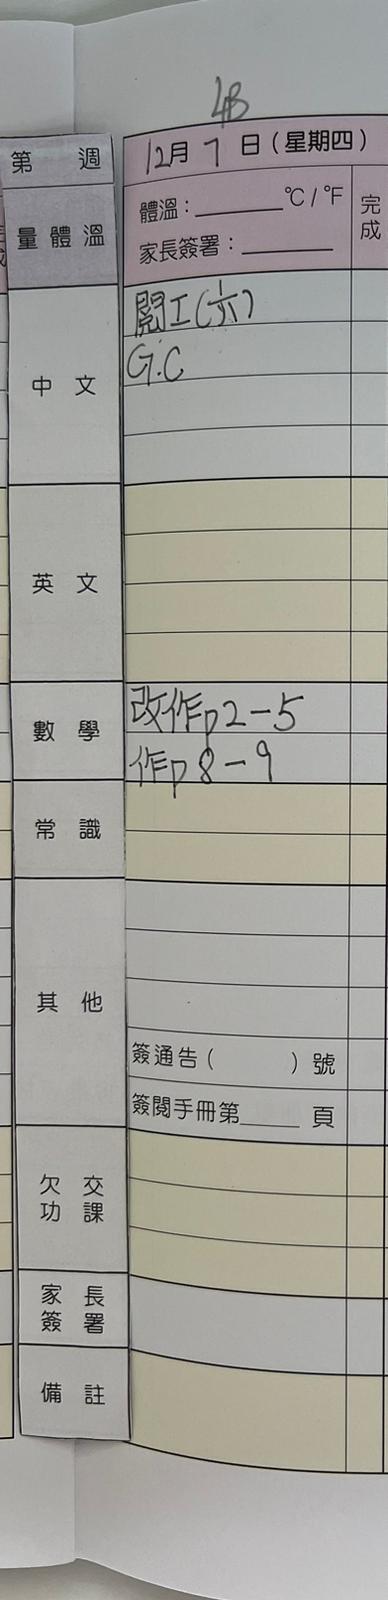 4B
第 週
12月 7 日（星期四）
量體溫
體溫：______ °C / °F
完成
家長簽署：______
中文
閱工(六)
G.C
英文
數學
改作p2-5
作p8-9
常識
其他
簽通告（ ）號
簽閱手冊第____頁
欠交功課
家長簽署
備註